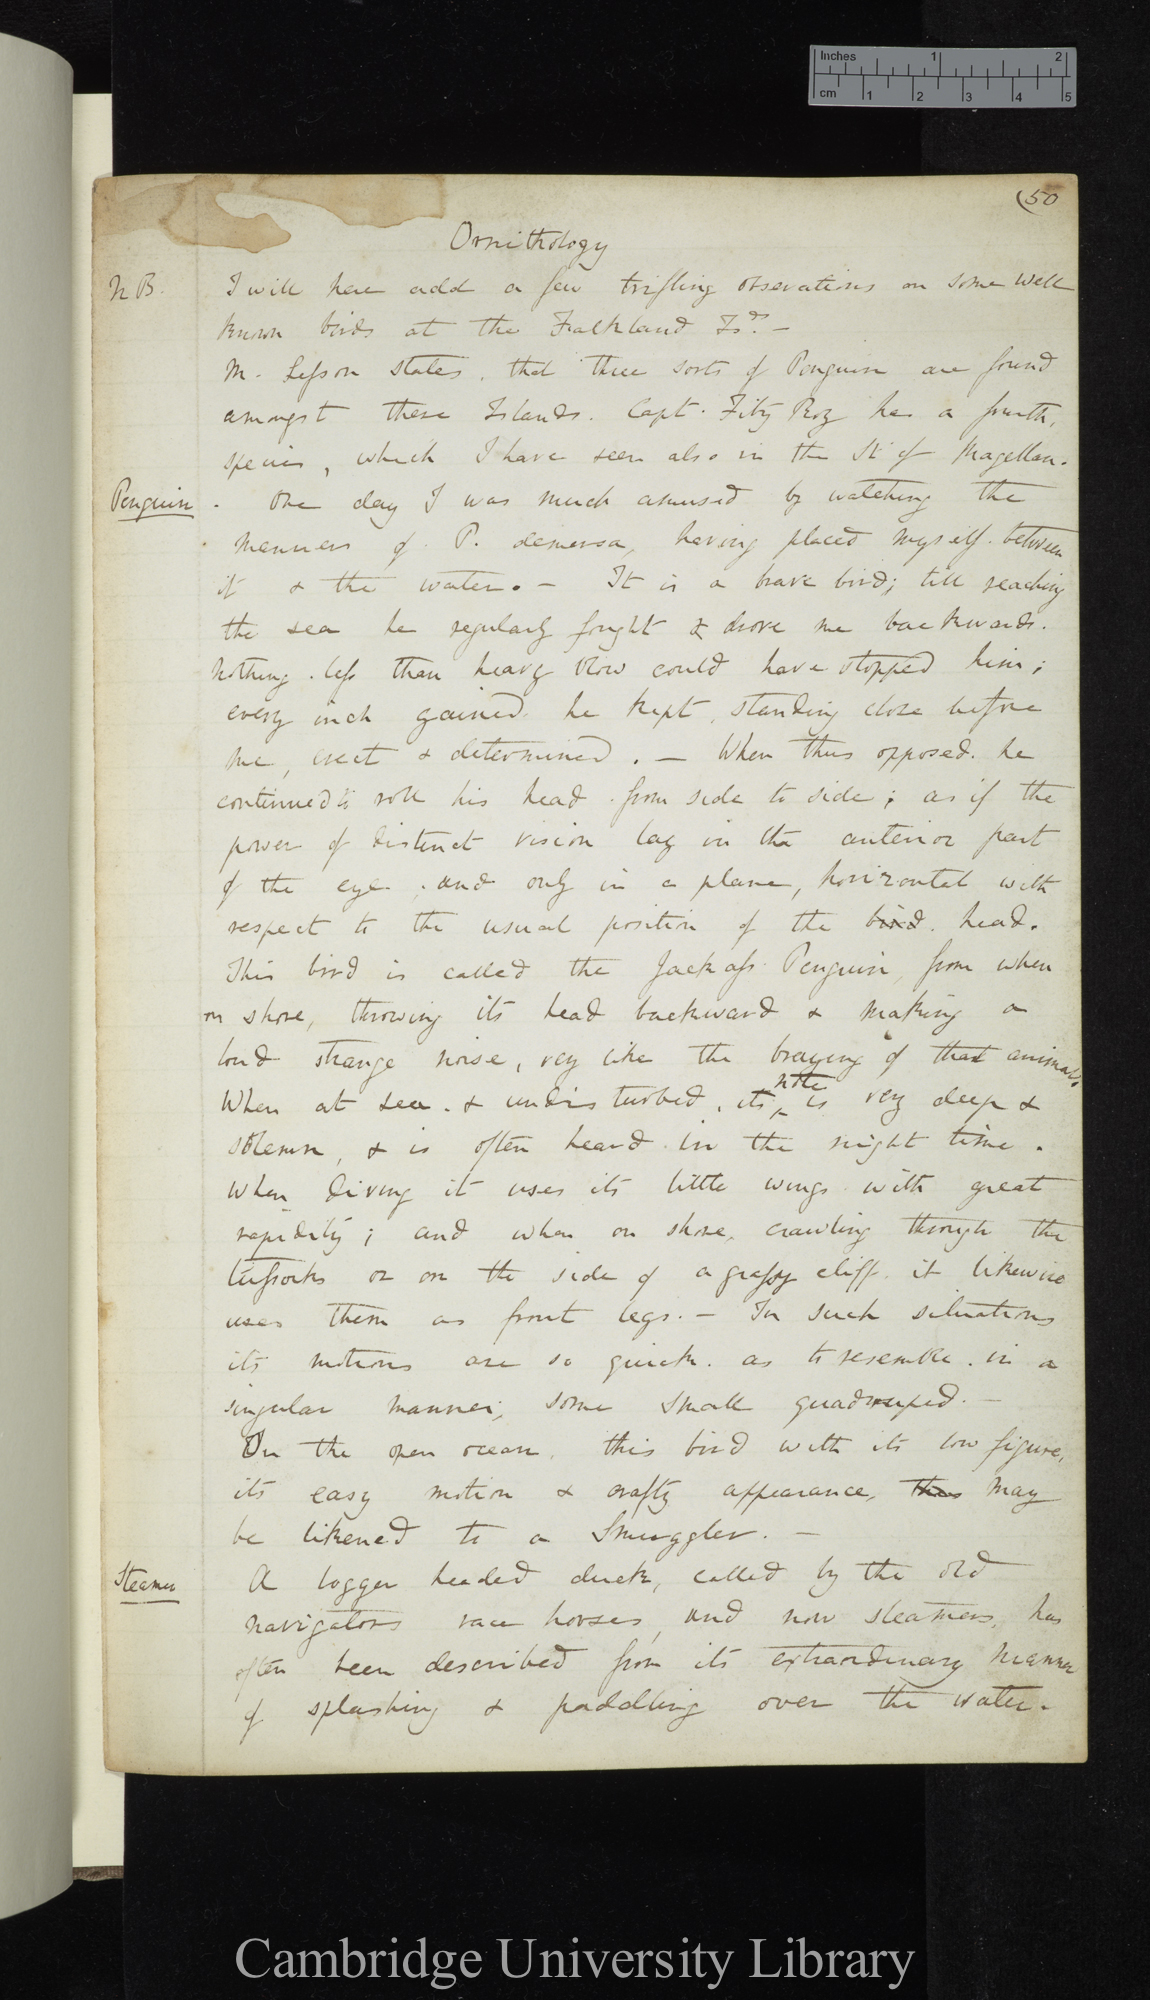 Inches 1 2
cm 1 2 3 4 5
(50
Ornithology
N B. I will here add a few trifling observations on some well
known birds at the Falkland Is.ds —
M. Lesson states, that three sorts of Penguin are found
amongst these Islands. Capt. Fitz Roy has a fourth,
species, which I have seen also in the St of Magellan.
Penguin . One day I was much amused by watching the
manners of P. demersa, having placed myself between
it & the water. — It is a brave bird; till reaching
the sea he regularly fought & drove me backwards.
Nothing less than heavy blow could have stopped him;
every inch gained he kept, standing close before
me, erect & determined. — When thus opposed he
continued to roll his head from side to side; as if the
power of distinct vision lay in the anterior part
of the eye, and only in a plane, horizontal with
respect to the usual position of the bird head.
This bird is called the Jackass Penguin, from when
on shore, throwing its head backward & making a
loud strange noise, very like the braying of that animals.
note
When at sea & undisturbed, its ^ is very deep &
solemn, & is often heard in the night time.
When diving it uses its little wings with great
rapidity; and when on shore, crawling through the
tussocks or on the side of a grassy cliff it likewise
uses them as front legs. — In such situations
its motions are so quick as to resemble in a
singular manner, some small quadruped. —
In the open ocean, this bird with its low figure,
its easy motion & crafty appearance, thus may
be likened to a Smuggler. —
Steamer A logger headed duck, called by the old
navigators race horses, and now steamers, has
often been described from its extraordinary manner
of splashing & paddling over the water.
Cambridge University Library